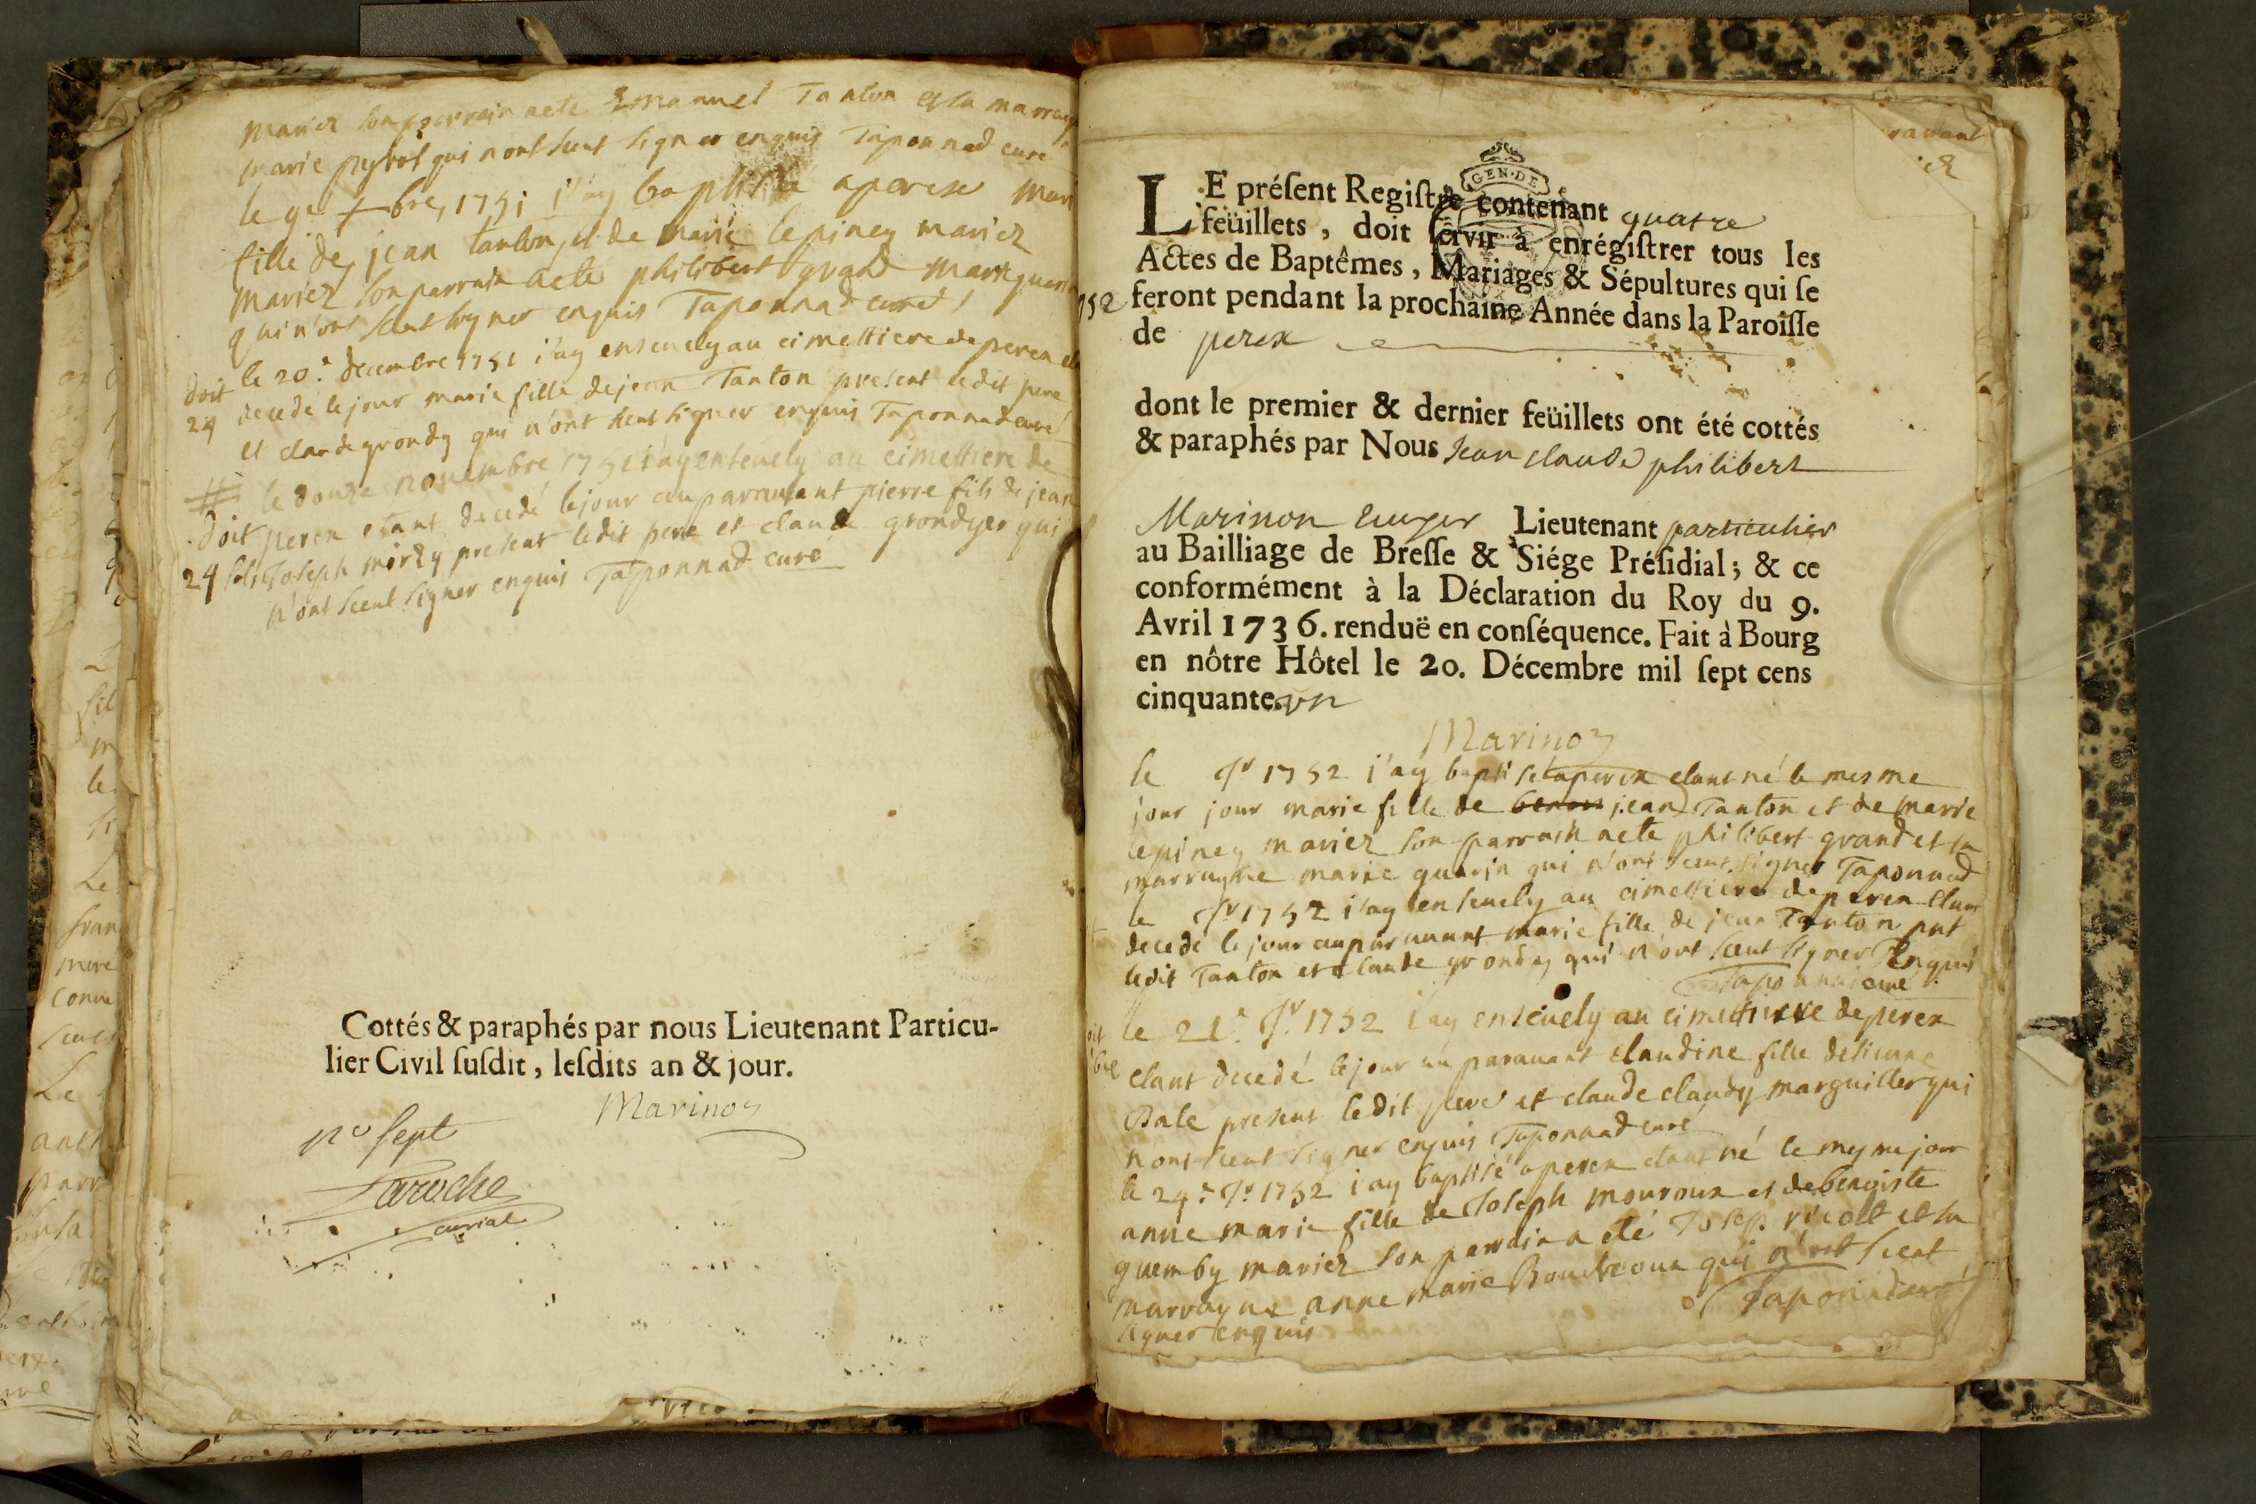 mariez son parrain a ete Emanuel Tanton et sa marrayne
marie peytot qui n ont sceut signer enquis Taponnad curé
le 9e xbre 1751 j'ay baptisé a perex marie
fille de jean tanton et de marie lepiney mariez
mariez son parrain a eté philibert grand marie guerin
qui n'ont sceut signer enquis Taponnad curé
le 20e decembre 1751 j'ay enseuely au cimettiere de perex
doit decedé le jour marie fille de jean Tanton present ledit pere
24 et claude grondy qui n'ont sceut signer enquis Taponnad curé
le douze novembre 1751 j'ay enseuely au cimettiere de
doit perex etant decedé le jour auparauant pierre fils de jean
24 sols Joseph present ledit pere et claude grondyer qui
n'ont sceut signer enquis Taponnad curé
Cottés & paraphés par nous Lieutenant Particu-
lier Civil susdit, lesdits an & jour.
Marinon
sept
Laroche
curial
GEN·DE
LE présent Registre contenant quatre
feüillets, doit servir à enrégistrer tous les
Actes de Baptêmes, Mariages & Sépultures qui se
752 feront pendant la prochaine Année dans la Paroisse
de perex
dont le premier & dernier feüillets ont été cottés
& paraphés par Nous Jean claude philibert
Marinon Lieutenant particulier
au Bailliage de Bresse & Siége Présidial; & ce
conformément à la Déclaration du Roy du 9.
Avril 1736. renduë en conséquence. Fait à Bourg
en nôtre Hôtel le 20. Décembre mil sept cens
cinquante un
Marinon
le Jr 1752 j'ay baptisé a perex etant né le mesme
jour jour marie fille de jean Tanton et de marie
lepiney mariez son parrain a ete philibert grand et sa
marrayne marie guerin qui n'ont sceut signer Taponnad
le Jr 1752 j'ay enseuely au cimettiere de perex etant
decedé le jour auparauant marie fille de jean Tanton pnt
ledit Tanton et claude grondy qui n'ont sceut signer enquis
Taponnad curé
le 21e Jr 1752 j'ay enseuely au cimettiere de perex
etant decedé le jour au parauant claudine fille
Bale present ledit pere et claude claudy marguiller qui
n ont sceut signer enquis Taponnad curé
le 24e Jr 1752 j'ay baptisé a perex etant né le mesme jour
anne marie fille de Joseph mouroux et de benoiste
guemby mariez son parrain a eté Josep et sa
marrayne anne marie qui n'ont sceut
signer enquis Taponnad curé